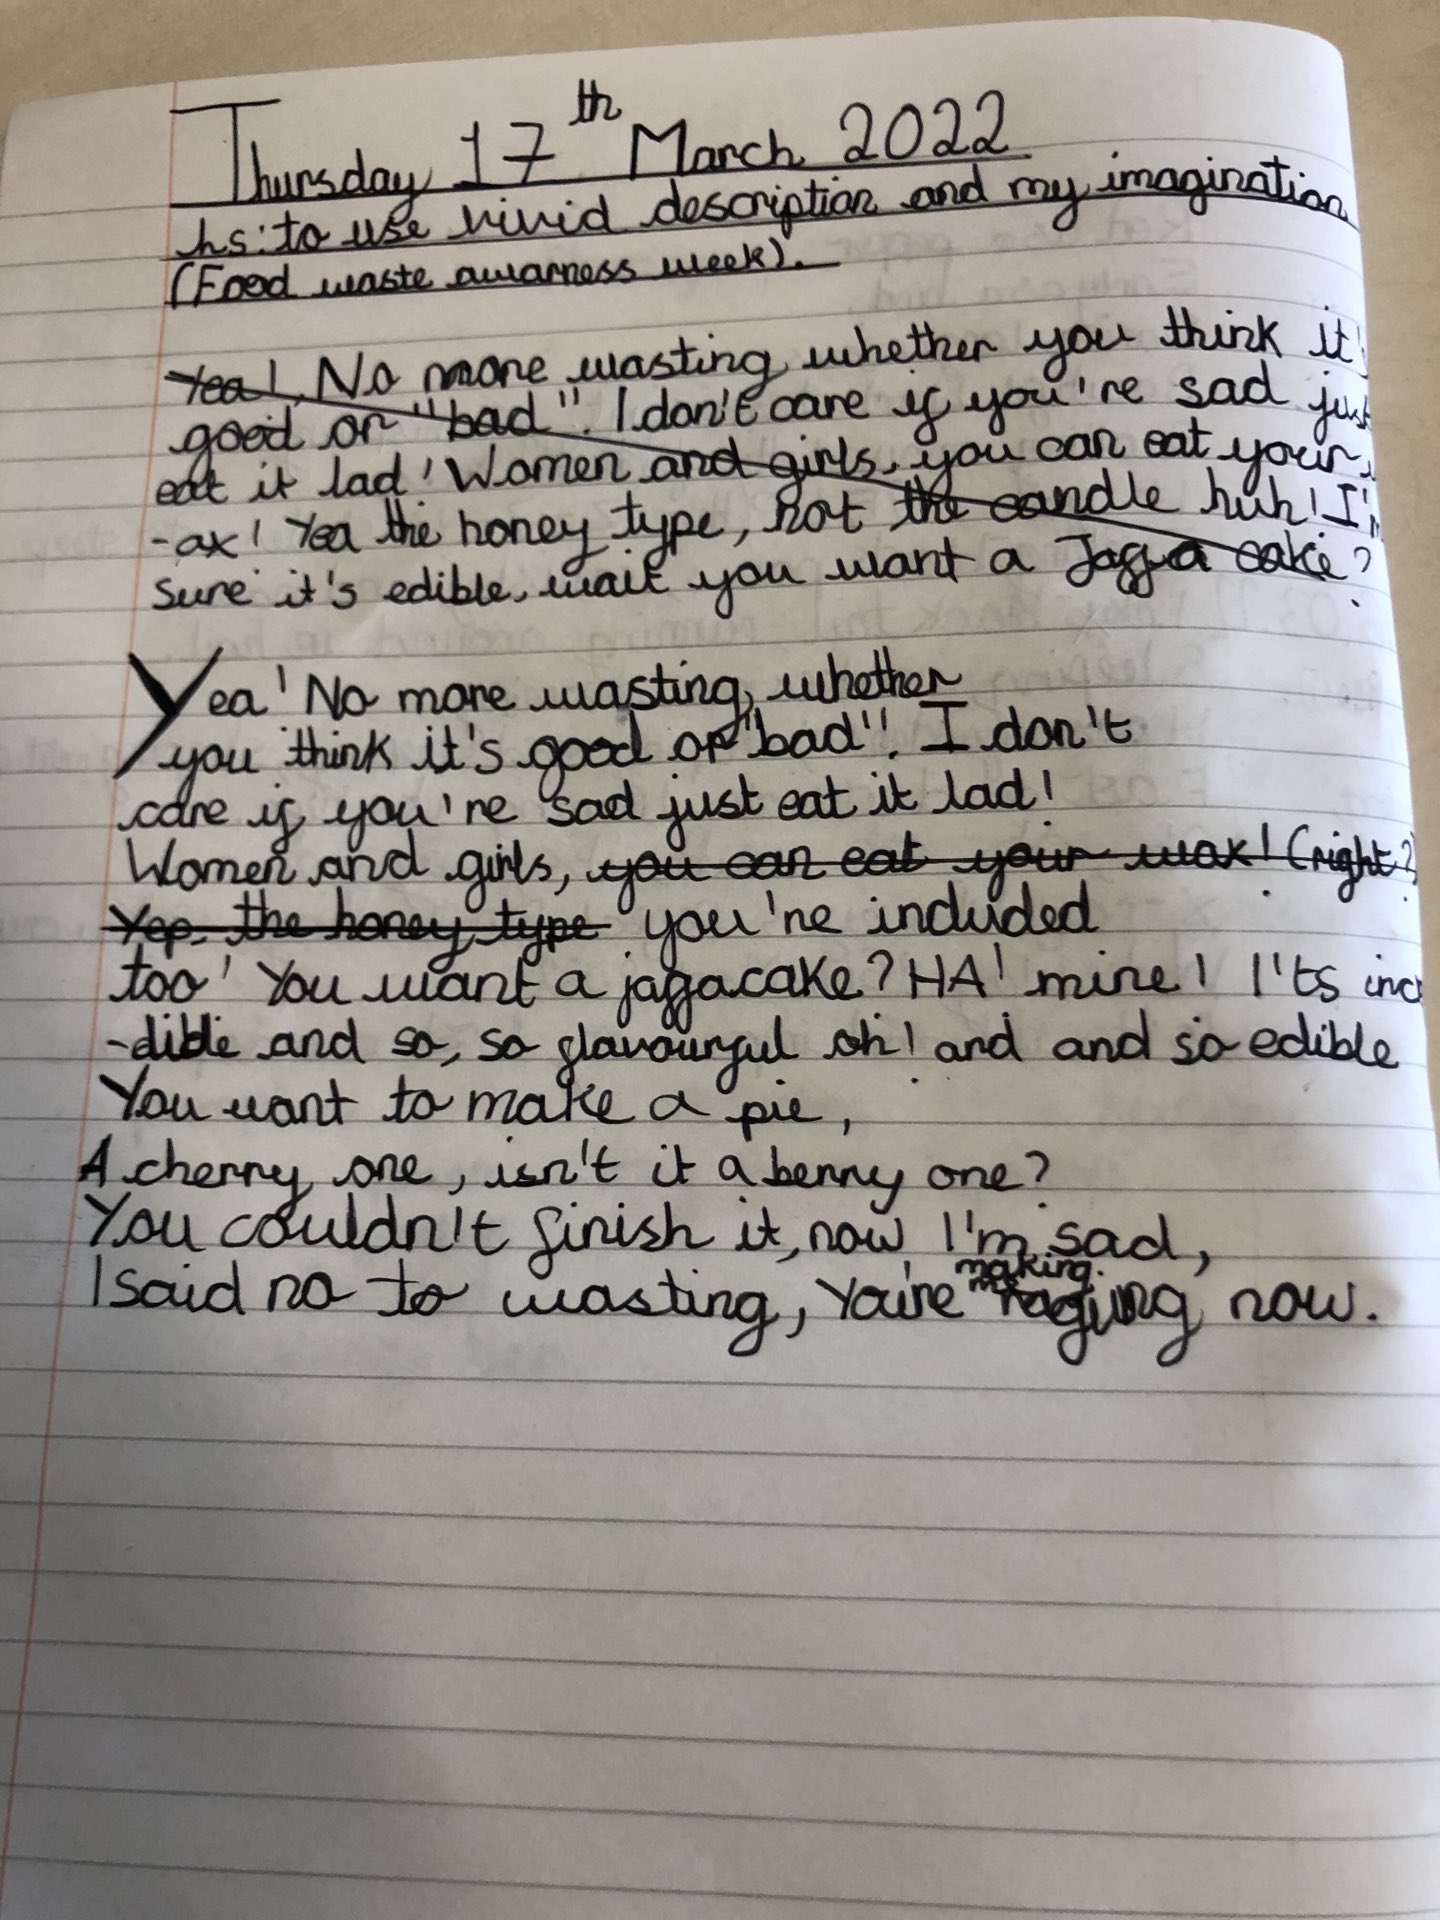 Thursday 17th March 2022
hs: to use vivid description and my imagination
(Food waste awarness week).
Yea! No more wasting, whether you think it's
good or "bad". I don't care if you're sad just
eat it lad! Women and girls, you can eat your
-ax! Yea the honey type, not the candle huh! I'm
sure it's edible, wait you want a Jaffa cake?
Yea! No more wasting, whether
you think it's good or "bad"! I don't
care if you're sad just eat it lad!
Women and girls, you can eat your wax! (right?)
Yep, the honey type you're included
too! You want a jaffacake? HA! mine! I'ts incr
-dible and so, so flavourful oh! and and so edible
You want to make a pie,
A cherry one, isn't it a berry one?
You couldn't finish it, now I'm sad,
I said no to wasting, You're making me raging now.